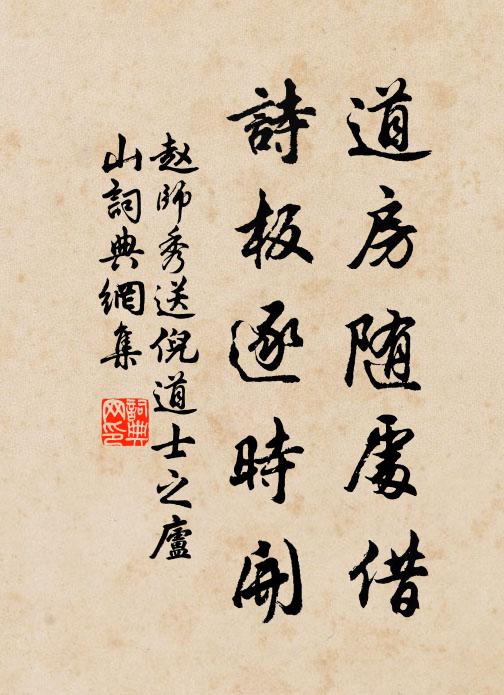 道房随處借
詩板逐時開
赵師秀送倪道士之廬
山詞典網集
詞典
网印